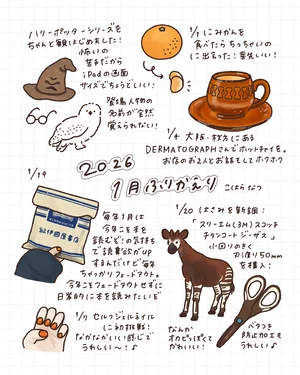 ハリーポッターシリーズを
ちゃんと観はじめました!
怖いの
苦手だから
iPadの画面
サイズでちょうどいい!
登場人物の
名前が全然
覚えられない!
1/1 にみかんを
食べたらちっちゃいの
に出会った!幸先いい!
1/4 大阪・枚方にある
DERMATOGRAPHさんでホットチャイを。
お店のお2人とお話もしてホクホク
2026
1月ふりかえり
こはら なつ
1/19
紀伊國屋書店
毎年1月は
今年こそ本を
読むぞ!の気持ち
で読書欲がUP
するんだけど毎年
ちゃっかりフェードアウト。
今年こそフェードアウトせずに
日常的に本を読みたいぞ
1/7 セルフジェルネイル
に初挑戦!
なかなかいい感じで
うれしい〜!♪
1/20 はさみを新調:
「スリーエム(3M)スコッチ
チタンコート ジーザス」
小回りのきく
刃渡り50mm
を購入!
なんか
オカピっぽくて
かわいい!
ベタつき
防止加工も
うれしい♪